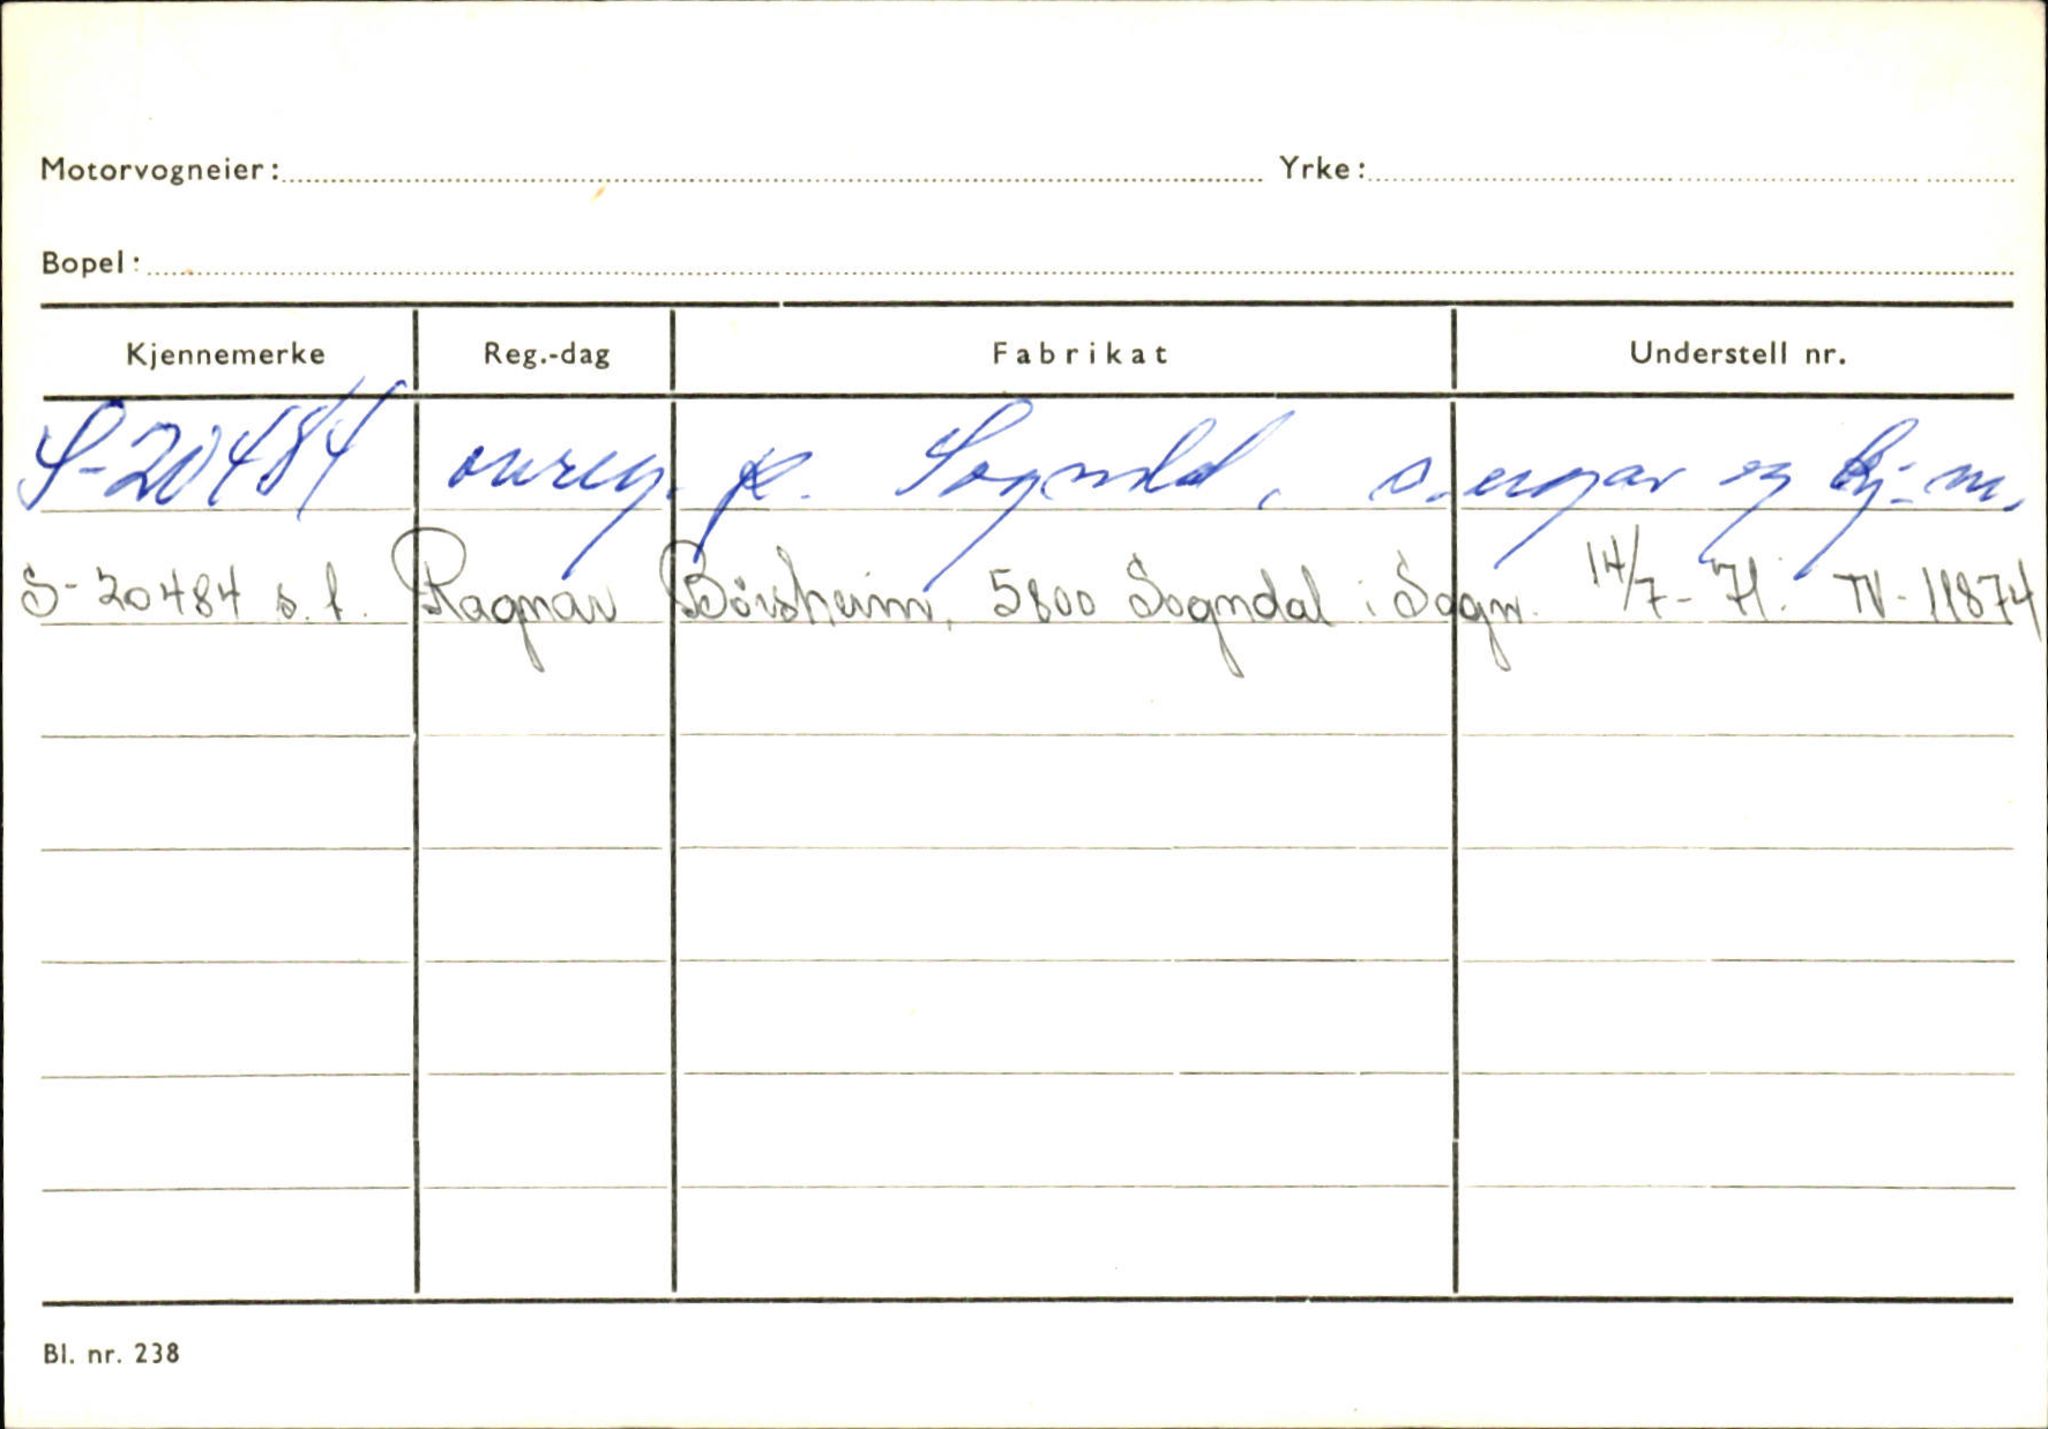 Motorvogneier: Yrke:
Bopel:
Kjennemerke Reg.-dag Fabrikat Understell nr.
S-20484 omreg. p. Sogndal, s. og kj.m.
S-20484 s.f. Ragnar Børsheim, 5800 Sogndal i Sogn. 14/7-71. TV-11874
Bl. nr. 238